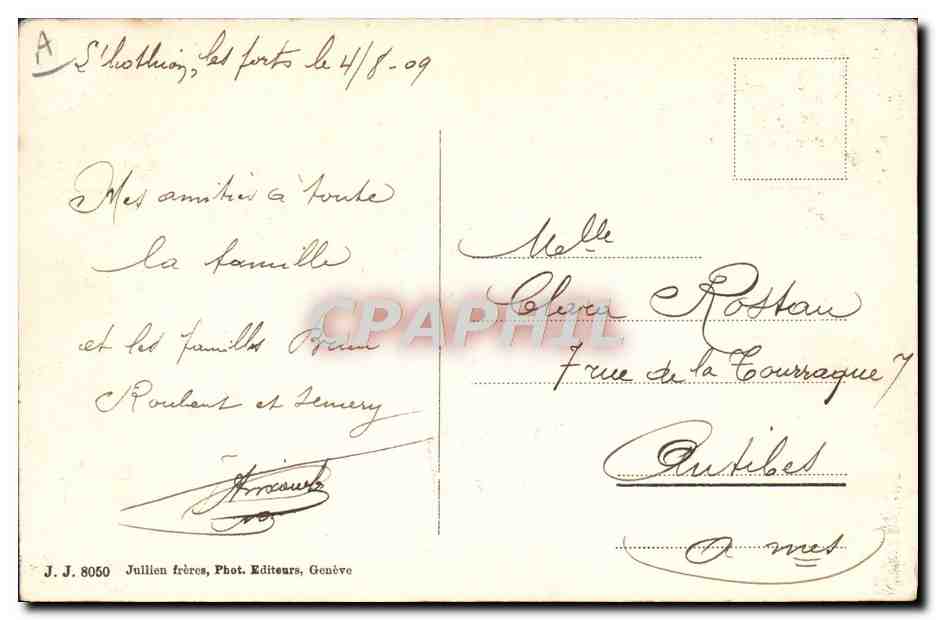 A
les forts le 4/8-09
Mes amitiés à toute
la famille
et les familles Brun
Roubent et
Melle
Clara Rostan
7 rue de la Tourraque 7
Antibes
a mes
CPAPHIL
J. J. 8050 Jullien frères, Phot. Editeurs, Genève